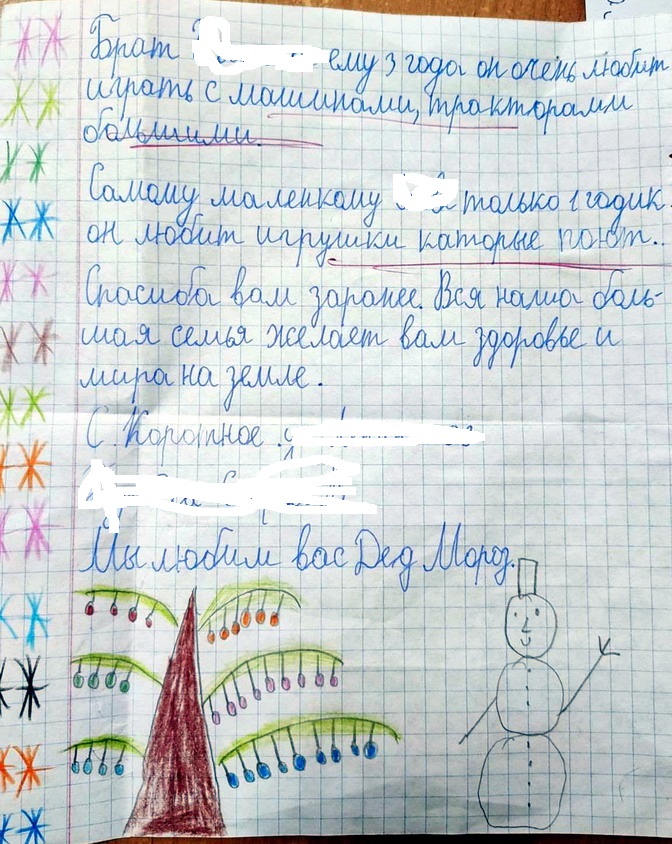 Брат ему 3 года он очень любит
играть с машинами, тракторами
большими.
Самому маленкому только 1 годик.
он любит игрушки каторые поют.
Спасиба вам заранее. Вся наша боль-
шая семья желает вам здоровье и
мира на земле.
С. Коротное.
Мы любим вас Дед Мороз.